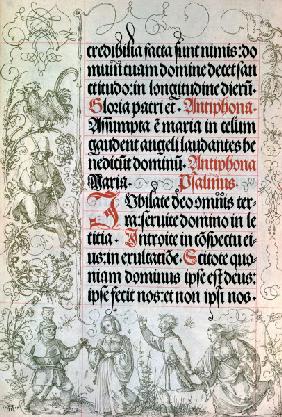 credibilia facta sunt nimis: do
mum tuam domine decet san
ctitudo: in longitudine dierū.
Gloria patri et̄. Antiphona.
Assumpta ē maria in celum
gaudent angeli laudantes be
nedicūt dominū. Antiphona
Maria. Psalmus.
IVbilate deo omnis ter-
ra: seruite domino in le
ticia. Introite in cōspectu ei-
us: in exultatiōe. Scitote quo-
niam dominus ipse est deus:
ipse fecit nos: et non ipsi nos.